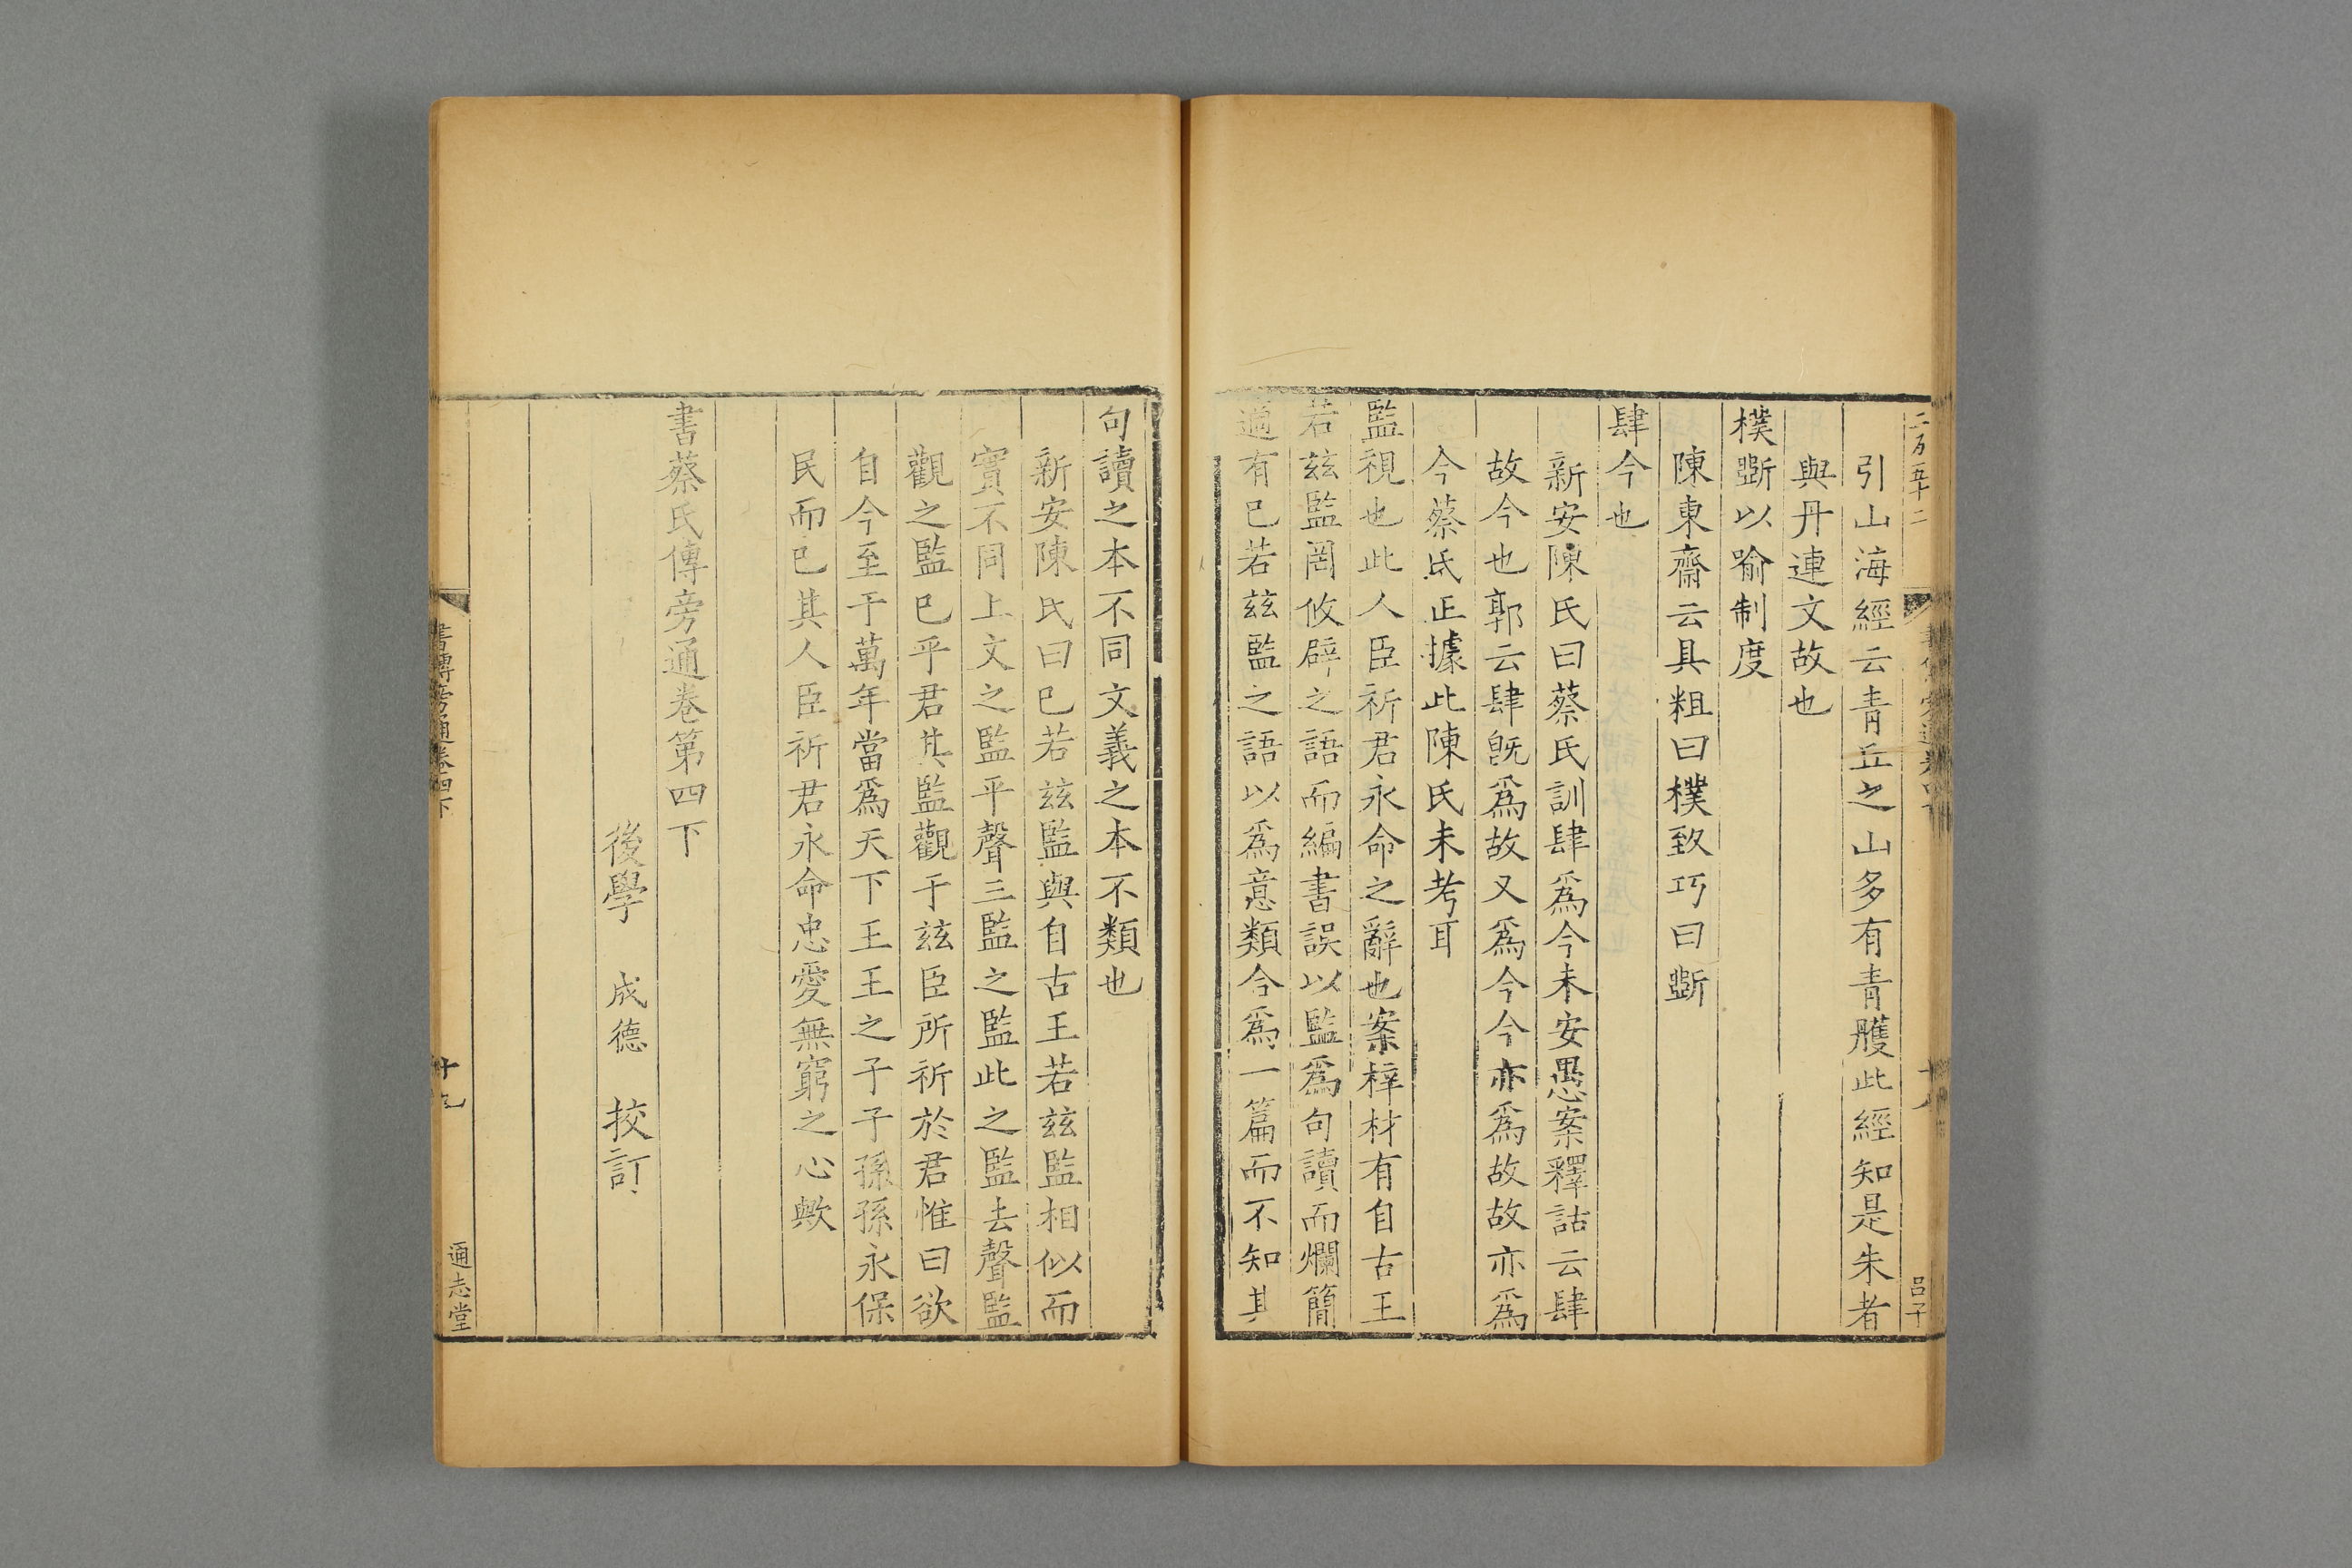 引山海經云青丘之山多有青雘此經知是朱者
與丹連文故也
樸斲以喻制度
陳東齋云具粗曰樸致巧曰斲
肆今也
新安陳氏曰蔡氏訓肆爲今未安愚案釋詁云肆
故今也郭云肆旣爲故又爲今今亦爲故故亦爲
今蔡氏正據此陳氏未考耳
監視也此人臣祈君永命之辭也案梓材有自古王
若兹監罔攸辟之語而編書誤以監爲句讀而爛簡
適有已若兹監之語以爲意類合爲一篇而不知其
呂子
句讀之本不同文義之本不類也
新安陳氏曰已若兹監與自古王若兹監相似而
實不同上文之監平聲三監之監此之監去聲監
觀之監已乎君其監觀于兹臣所祈於君惟曰欲
自今至于萬年當爲天下王王之子子孫孫永保
民而已其人臣祈君永命忠愛無窮之心歟
書蔡氏傳旁通卷第四下
後學 成德 挍訂
書傳旁通卷四下
十九
通志堂